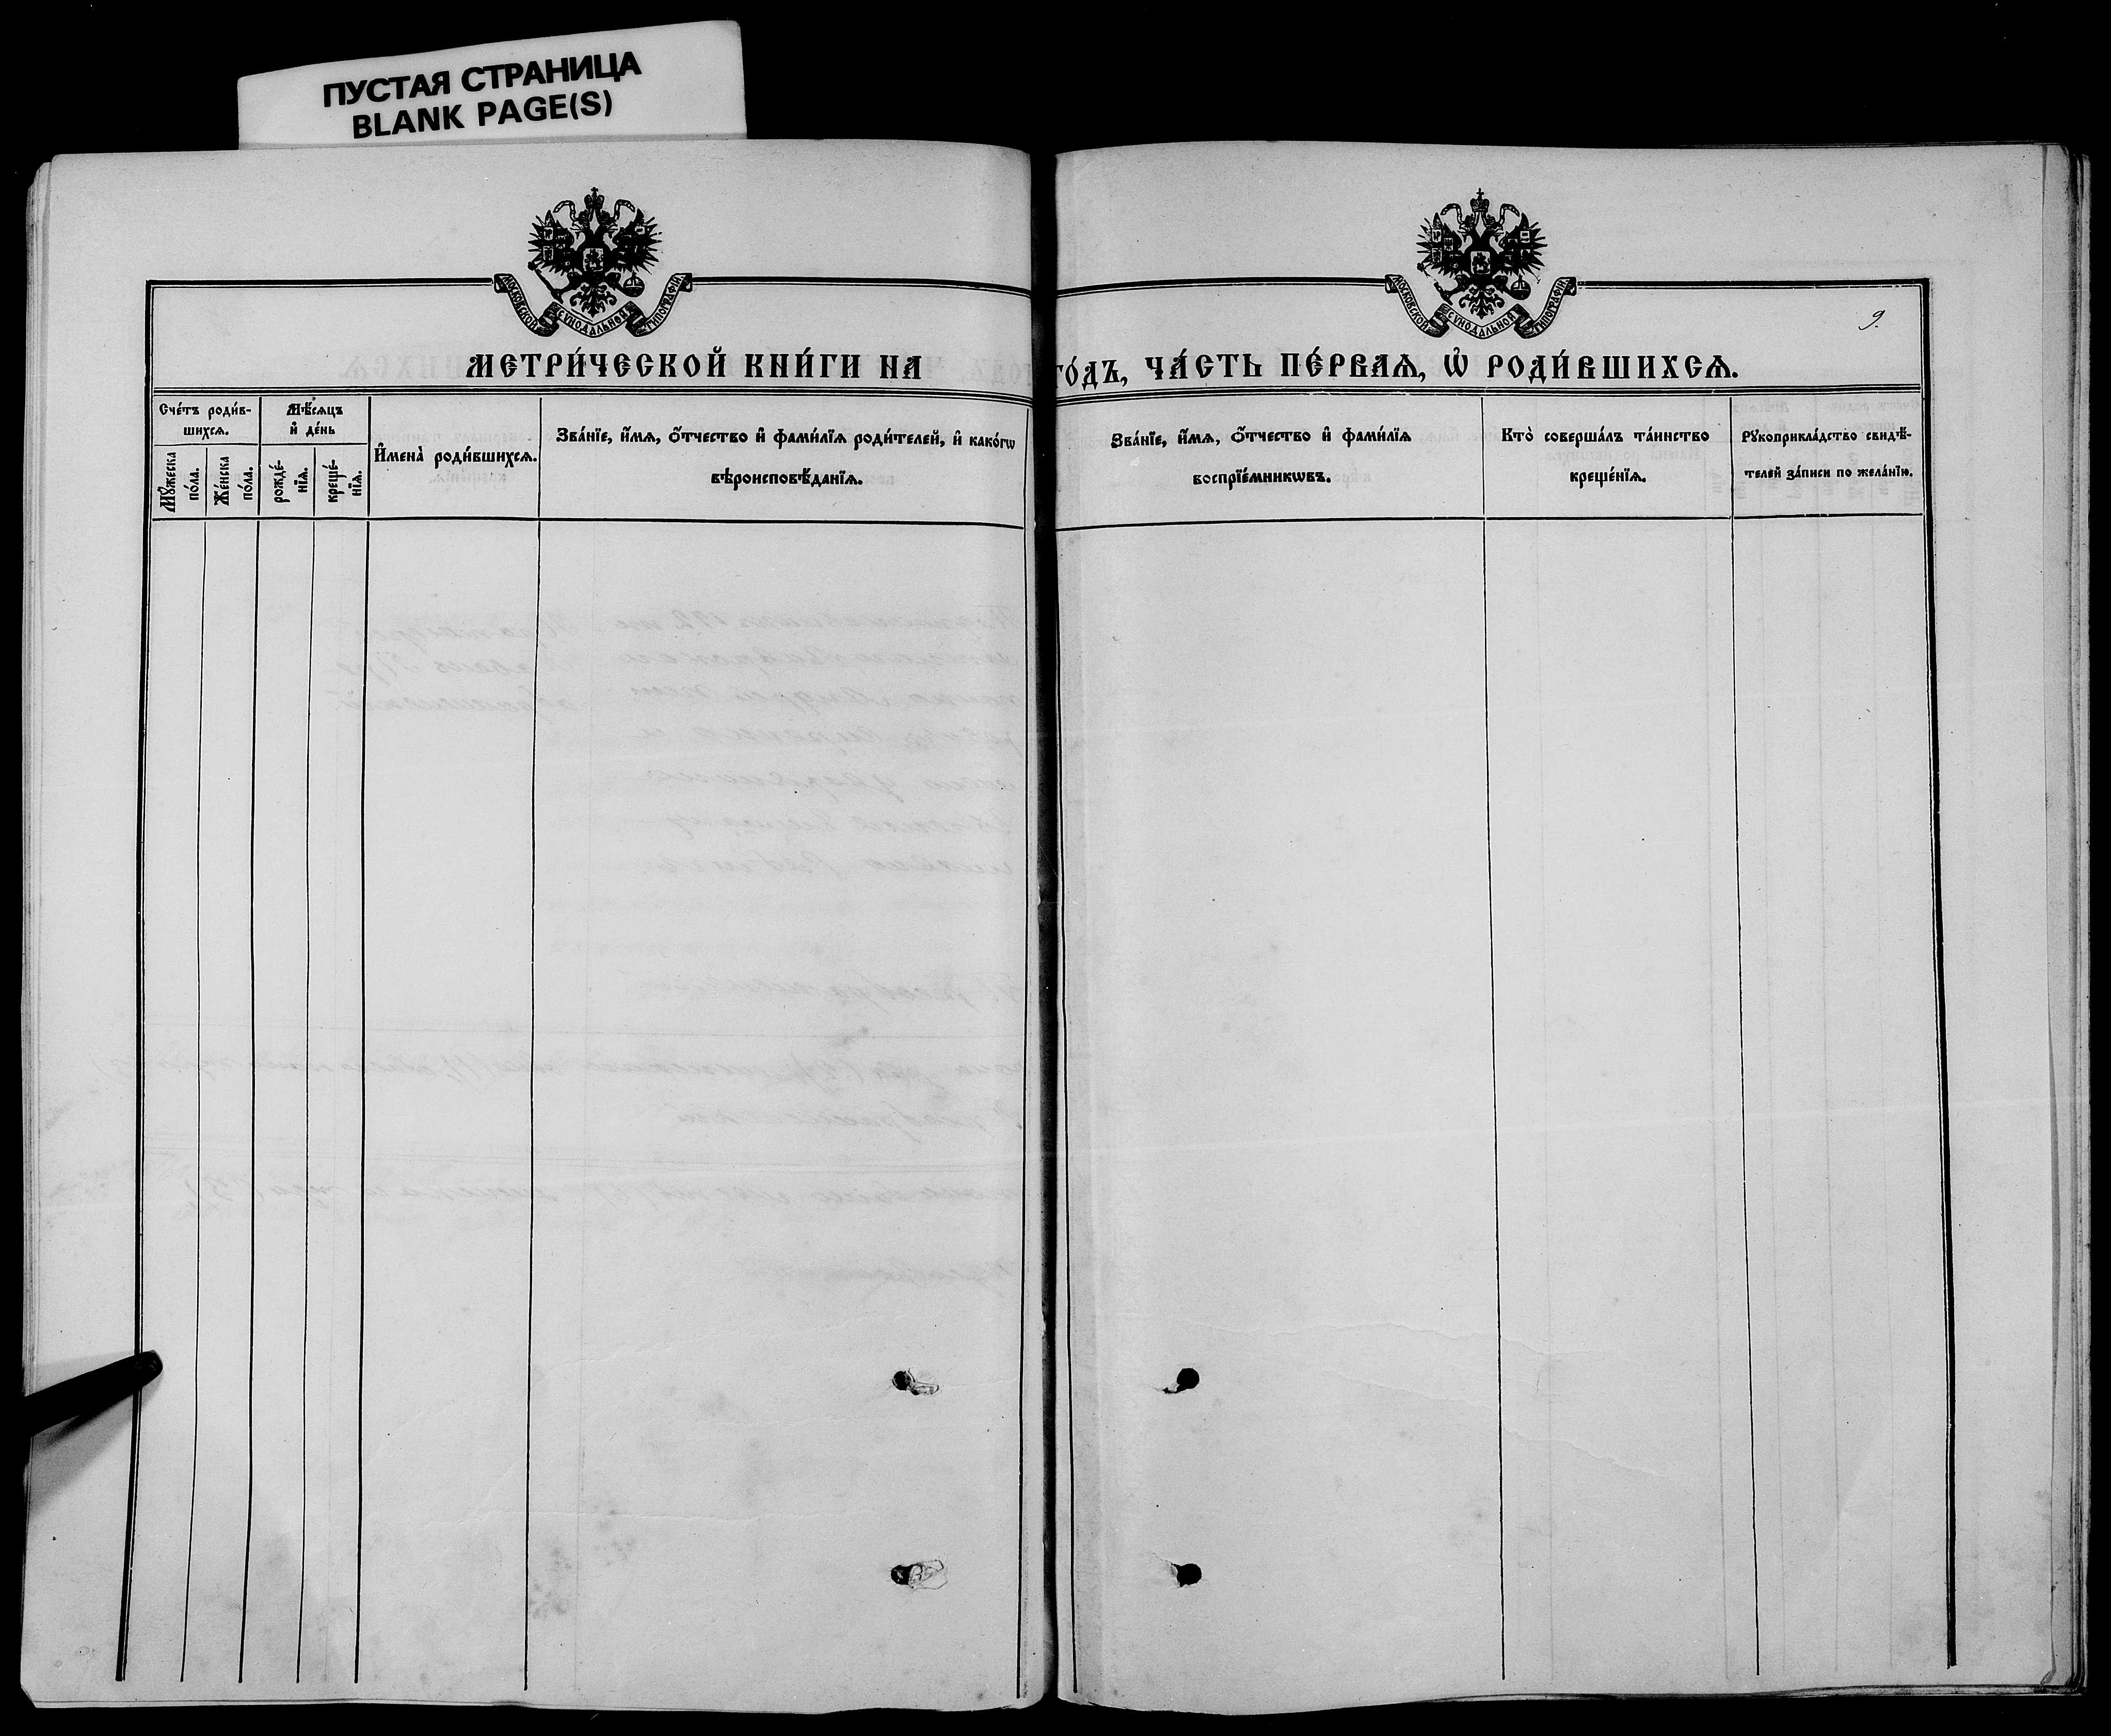 ПУСТАЯ СТРАНИЦА
BLANK PAGE(S)
МОСКОВСКОЙ СѴНОДАЛЬНОЙ ТИПОГРАФІИ
МОСКОВСКОЙ СѴНОДАЛЬНОЙ ТИПОГРАФІИ
9.
МЕТРИ́ЧЕСКОЙ КНИ́ГИ НА ГО́ДЪ, ЧА́СТЬ ПЕ́РВАѦ, Ѽ РОДИ́ВШИХСѦ.
Сче́тъ роди́в-
шихсѧ.
Мꙋ́жеска
по́ла.
Же́нска
по́ла.
Мѣ́сѧцъ
и҆ де́нь
рожде́-
нїѧ.
креще́-
нїѧ.
И҆мена̀ роди́вшихсѧ.
Зва́нїе, и҆́мѧ, ѻ҆́тчество и҆ фами́лїѧ роди́телей, и҆ како́гѡ
вѣроисповѣ́данїѧ.
Зва́нїе, и҆́мѧ, ѻ҆́тчество и҆ фами́лїѧ
воспрїе́мникѡвъ.
Кто̀ соверша́лъ та́инство
креще́нїѧ.
Рꙋкоприкла́дство свидѣ́-
телей за́писи по жела́нїю.